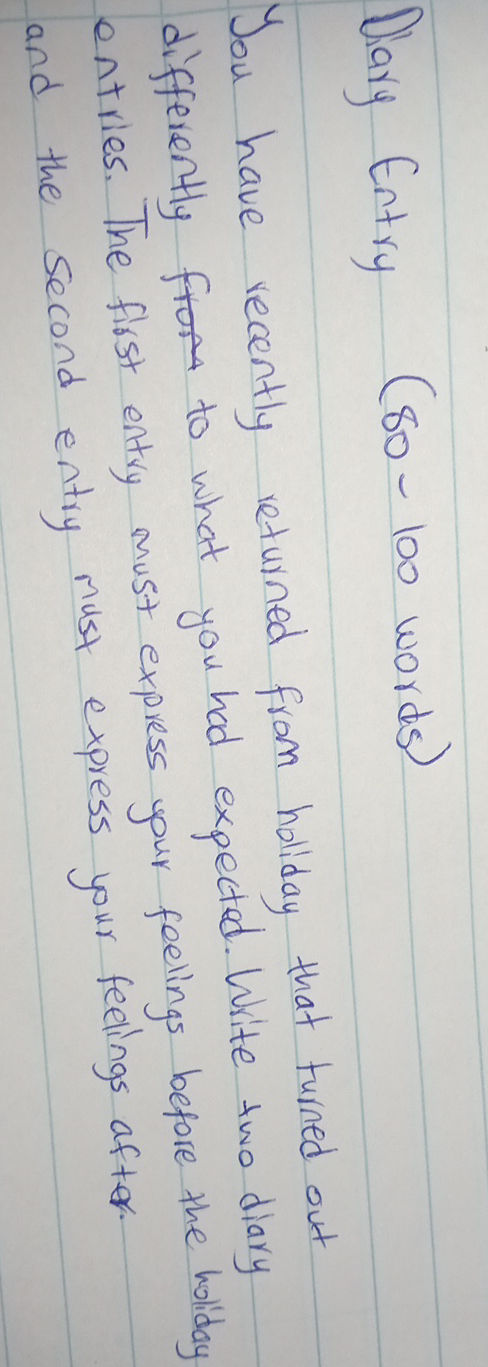 Diary Entry (80-100 words)
You have recently returned from holiday that turned out
differently from to what you had expected. Write two diary
entries. The first entry must express your feelings before the holiday
and the second entry must express your feelings after.